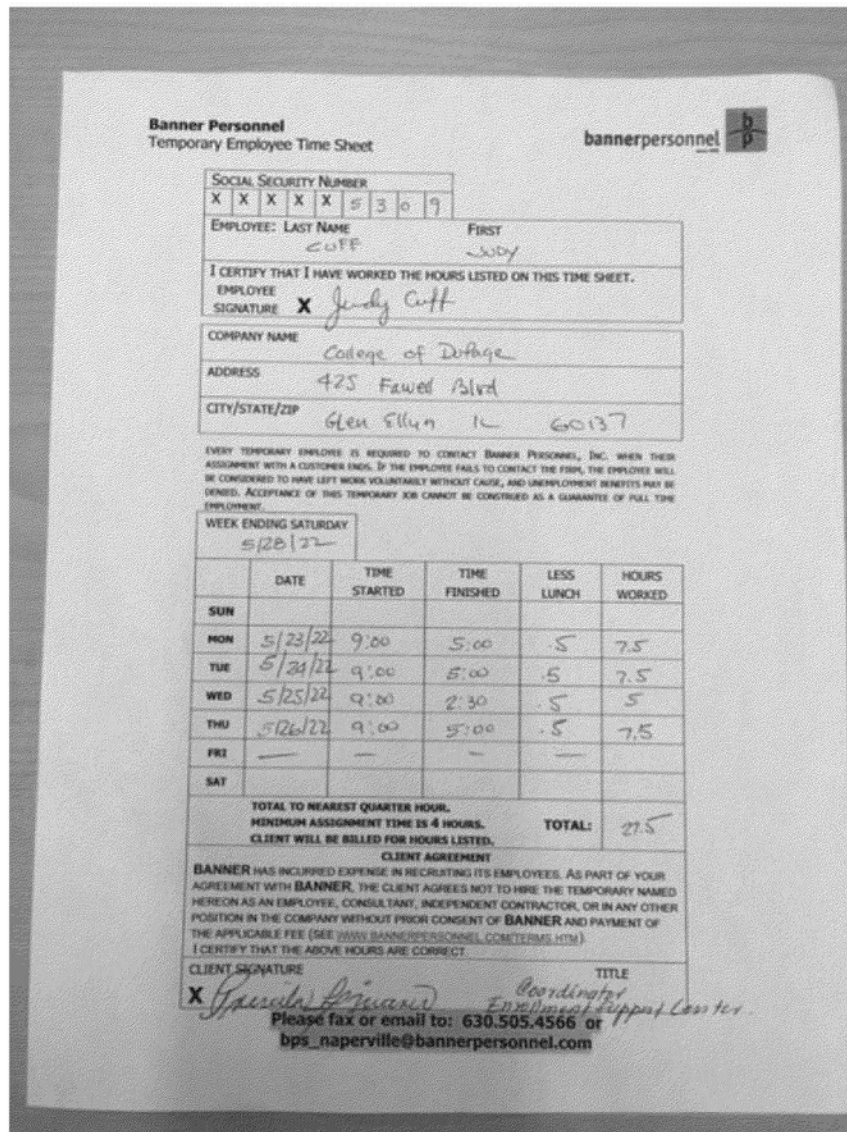 Banner Personnel
Temporary Employee Time Sheet
bannerpersonnel
b
p
SOCIAL SECURITY NUMBER
X X X X X 5 3 0 9
EMPLOYEE: LAST NAME FIRST
CUFF JUDY
I CERTIFY THAT I HAVE WORKED THE HOURS LISTED ON THIS TIME SHEET.
EMPLOYEE
SIGNATURE X Judy Cuff
COMPANY NAME
College of DuPage
ADDRESS
425 Fawell Blvd
CITY/STATE/ZIP
Glen Ellyn IL 60137
EVERY TEMPORARY EMPLOYEE IS REQUIRED TO CONTACT BANNER PERSONNEL, INC. WHEN THEIR
ASSIGNMENT WITH A CUSTOMER ENDS. IF THE EMPLOYEE FAILS TO CONTACT THE FIRM, THE EMPLOYEE WILL
BE CONSIDERED TO HAVE LEFT WORK VOLUNTARILY WITHOUT CAUSE, AND UNEMPLOYMENT BENEFITS MAY BE
DENIED. ACCEPTANCE OF THIS TEMPORARY JOB CANNOT BE CONSTRUED AS A GUARANTEE OF FULL TIME
EMPLOYMENT.
WEEK ENDING SATURDAY
5/28/22
DATE TIME STARTED TIME FINISHED LESS LUNCH HOURS WORKED
SUN
MON 5/23/22 9:00 5:00 .5 7.5
TUE 5/24/22 9:00 5:00 .5 7.5
WED 5/25/22 9:00 2:30 .5 5
THU 5/26/22 9:00 5:00 .5 7.5
FRI — — — —
SAT
TOTAL TO NEAREST QUARTER HOUR.
MINIMUM ASSIGNMENT TIME IS 4 HOURS. TOTAL: 27.5
CLIENT WILL BE BILLED FOR HOURS LISTED.
CLIENT AGREEMENT
BANNER HAS INCURRED EXPENSE IN RECRUITING ITS EMPLOYEES. AS PART OF YOUR
AGREEMENT WITH BANNER, THE CLIENT AGREES NOT TO HIRE THE TEMPORARY NAMED
HEREON AS AN EMPLOYEE, CONSULTANT, INDEPENDENT CONTRACTOR, OR IN ANY OTHER
POSITION IN THE COMPANY WITHOUT PRIOR CONSENT OF BANNER AND PAYMENT OF
THE APPLICABLE FEE (SEE WWW.BANNERPERSONNEL.COM/TERMS.HTM).
I CERTIFY THAT THE ABOVE HOURS ARE CORRECT.
CLIENT SIGNATURE TITLE
X Coordinator
Enrollment Support Center.
Please fax or email to: 630.505.4566 or
bps_naperville@bannerpersonnel.com